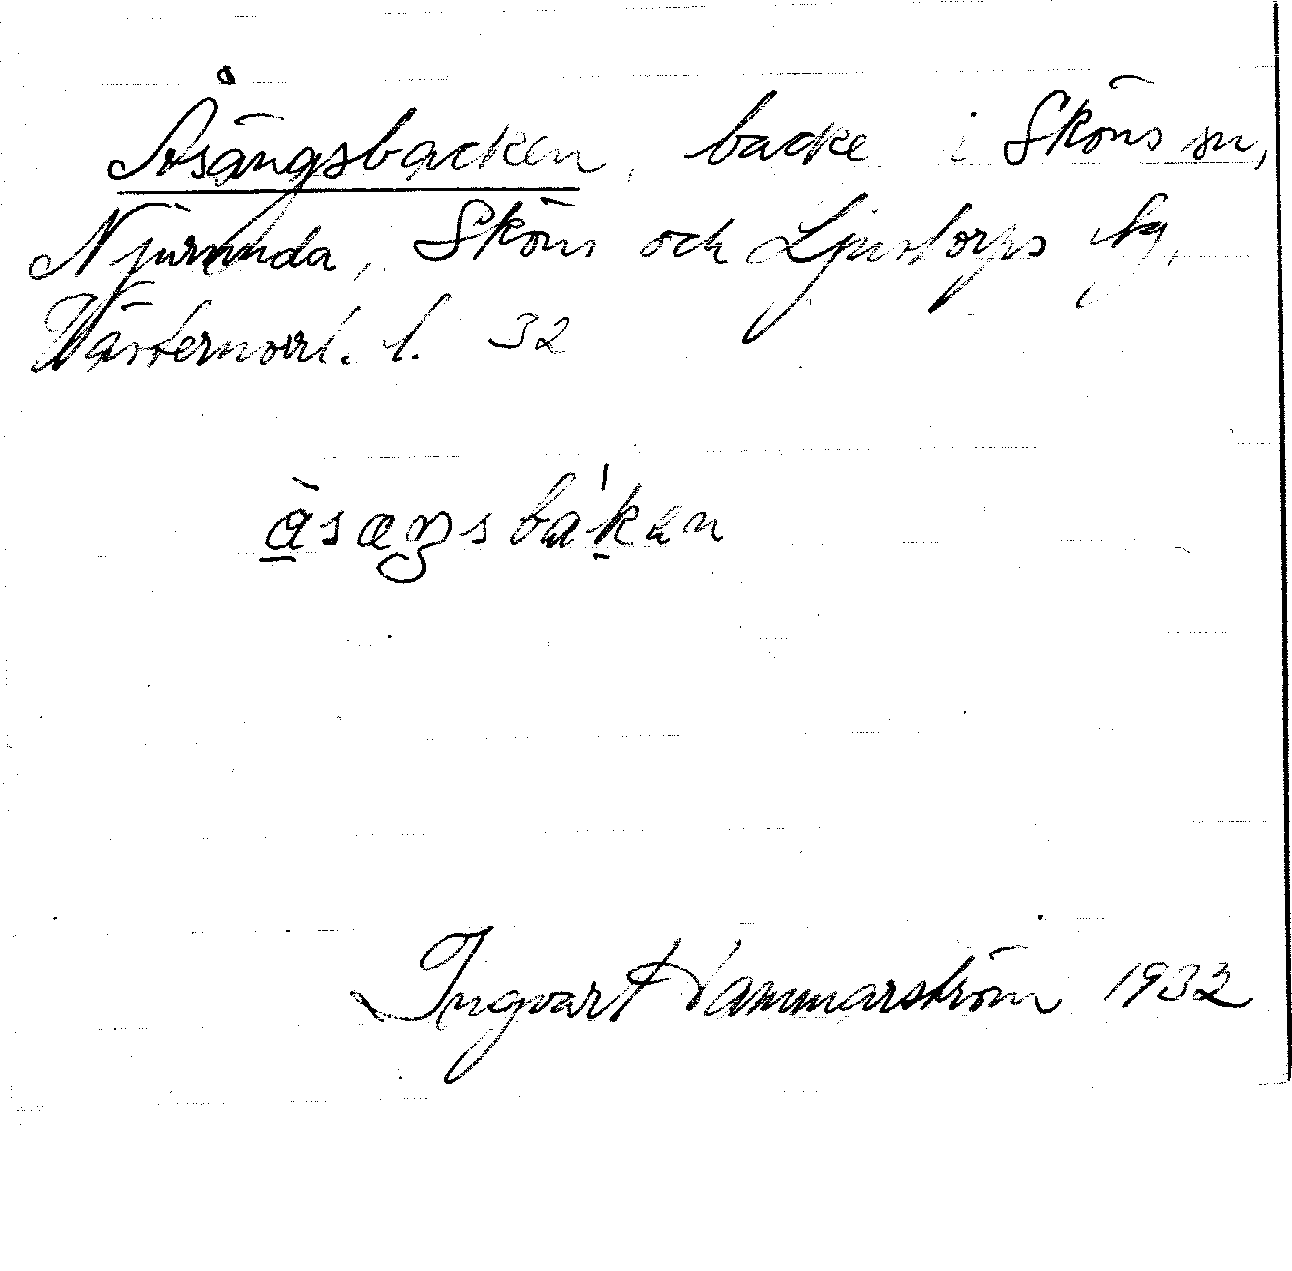 Åsängsbacken, backe i Sköns sn,
Njurunda, Sköns och Ljustorps tg,
Västernorrl. l. 32
åsæŋsbakən
Ingvar Hammarström 1932